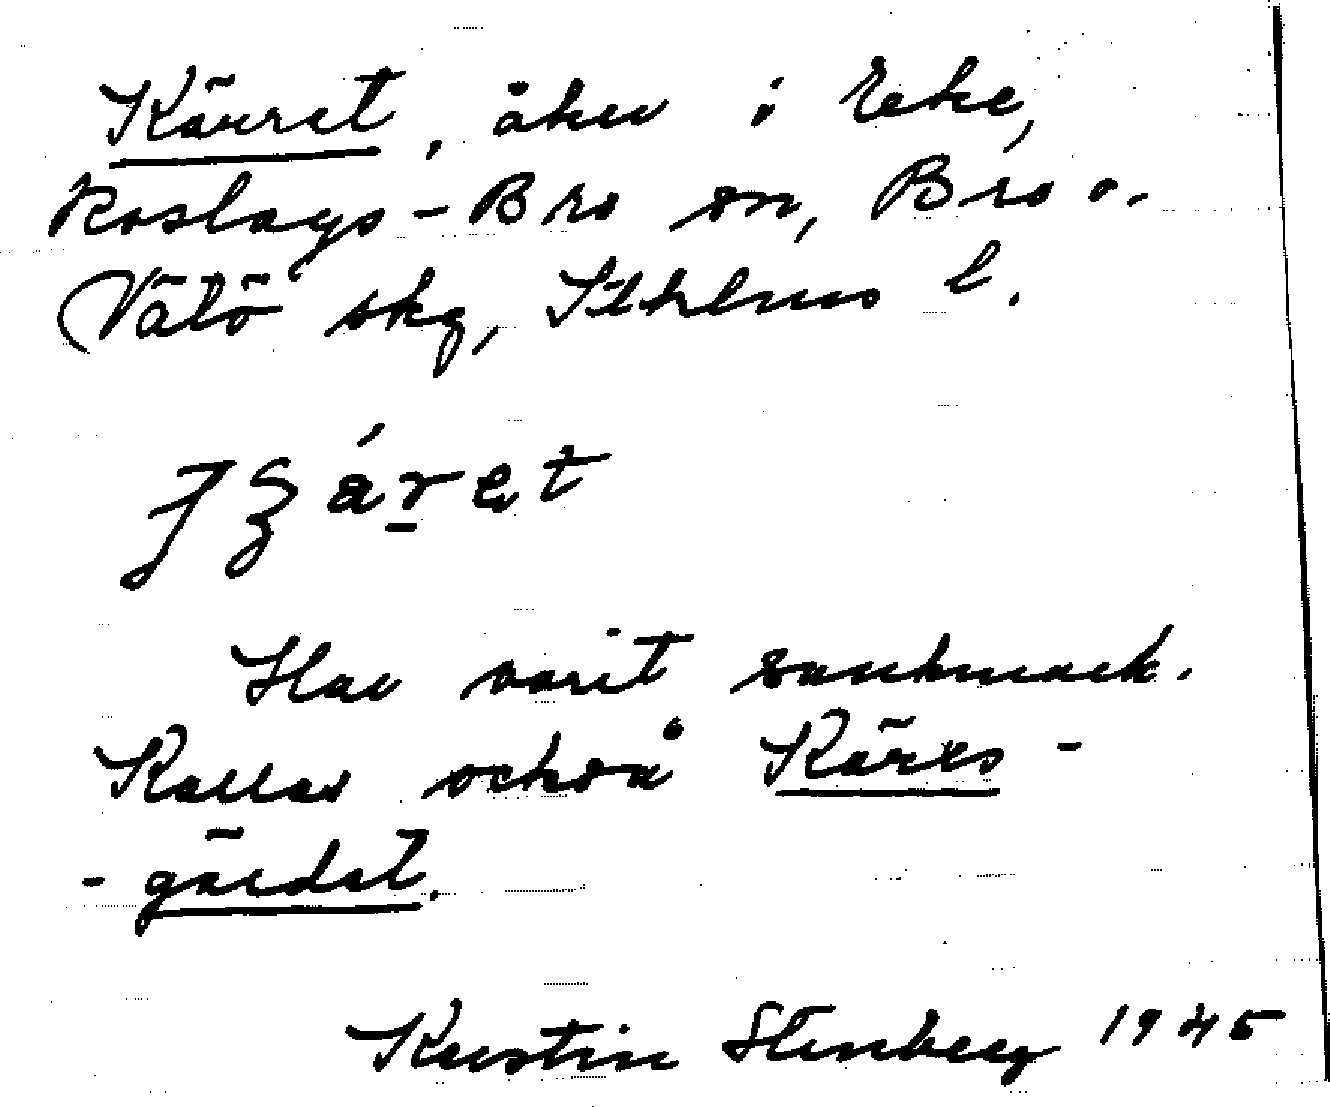 Kärret, åker i Eke,
Roslags-Bro sn, Bro o.
Vätö skg, Sthlms l.
Har varit sankmark.
Kallas också Kärrs-
-gärdet.
Kerstin Stenberg 1945